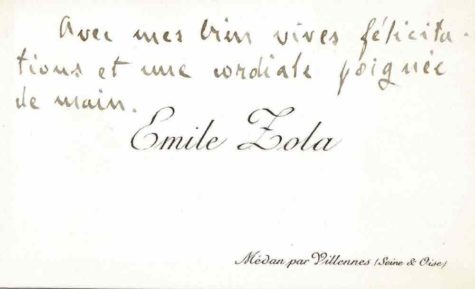 Avec mes bien vives félicita-
tions et une cordiale poignée
de main.
Emile Zola
Médan par Villennes (Seine & Oise)